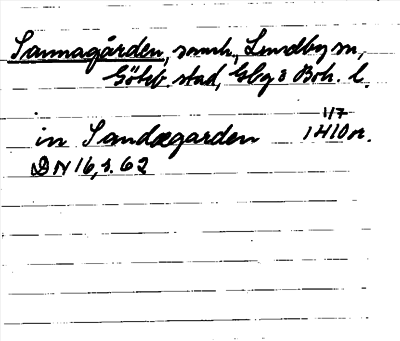 Sannagården, samh., Lundby sn,
Göteb. stad, Gbg o Boh. l.
1/7
in Sandægarden 1410 or.
DN 16, s. 62